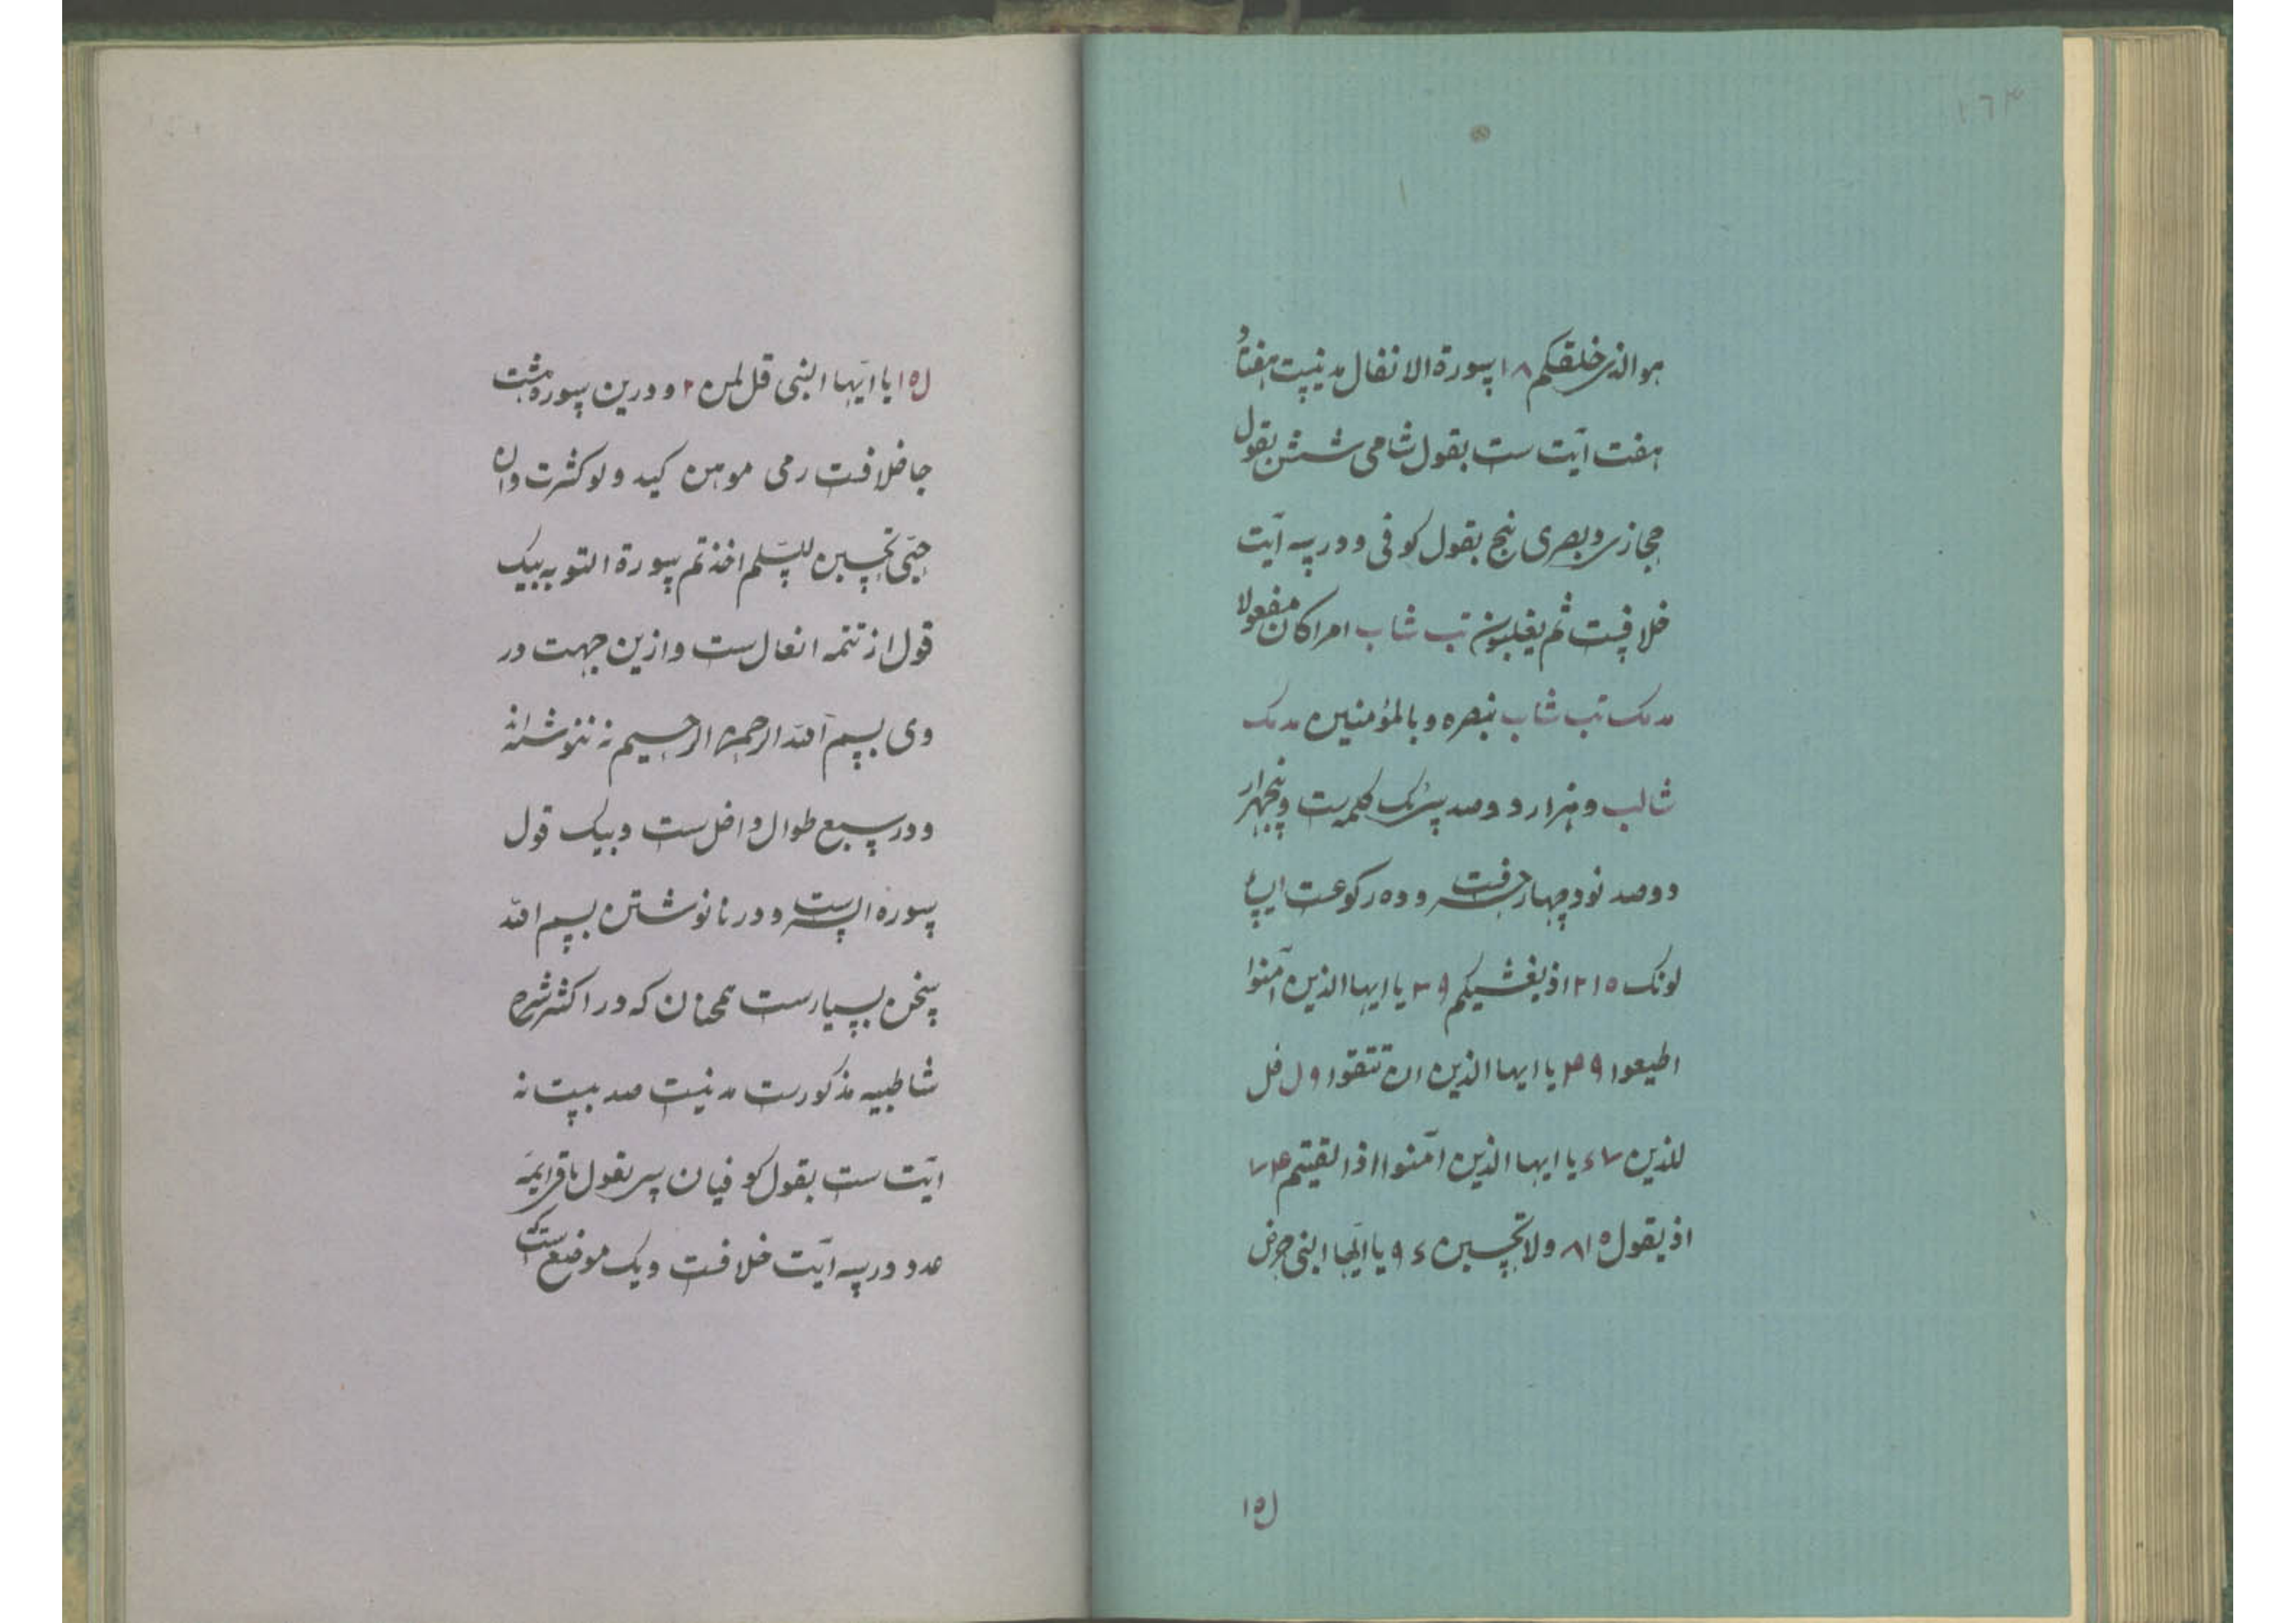 ١٦٣
هو الذی خلقکم ١٨ سورة الانفال مدنیست هفتاد
هفت آیت ست بقول شامی شش بقول
حجازی و بصری پنج بقول کوفی و در سه آیت
خلافست ثم یغلبون تب شاب امرا کان مفعولا
مدمک تب شاب بنصره و بالمؤمنین مدمک
شالب و هزار دوصد سی یک کلمه ست و پنجهزار
دوصد نود چهار حرفست و ده رکوعست یسا
لونک ١٥ ٢ اذ یغشیکم ٩ ٣ یا ایها الذین آمنوا
اطیعوا ٩ ٤ یا ایها الذین ان تتقوا ٩ ل قل
للذین ٧ ٤ یا ایها الذین آمنوا اذا لقیتم ٤ ٧
اذ یقول ١٥ ٨ ولا تحسبن ٤ ٩ یا ایها النبی حرض
ل١٥
ل١٥ یا ایها النبی قل لمن ٢ و درین سوره هشت
جا خلافست رمی موهن کید ولو کثرت وان
حیی تحسبن للسلم اخذتم سورة التوبه بیک
قول از تتمه انفال ست و ازین جهت در
وی بسم الله الرحمن الرحیم نه ننوشته‌اند
و در سبع طوال داخل ست و بیک قول
سوره ایست و در نا نوشتن بسم الله
سخن بسیارست همچنان که در اکثر شرح
شاطبیه مذکورست مدنیست صد بیست نه
ایت ست بقول کوفیان سی بقول باقی ایمه
عدد در سه آیت خلافست و یک موضع ست که